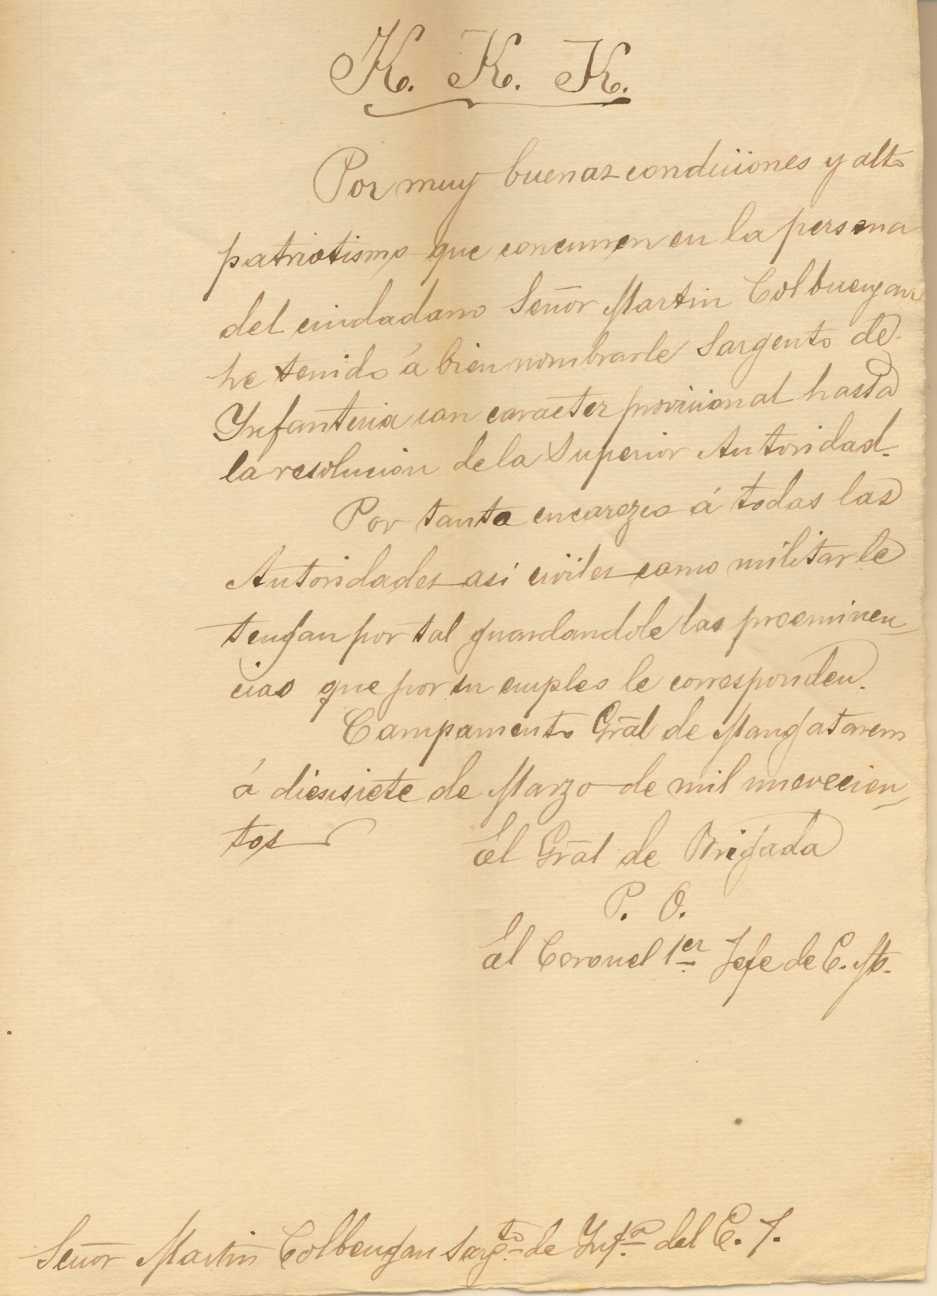 K. K. K.
Por muy buenas condiciones y alto
patriotismo que concurren en la persona
del ciudadano Señor Martin Colbengan
he tenido á bien nombrarle Sargento de
Ynfanteria con caracter provicional hasta
la resolucion de la Superior Autoridad.
Por tanto encarezco á todas las
Autoridades así civiles como militar le
tengan por tal guardandole las preeminen-
cias que por su empleo le corresponden.
Campamento Grãl de Mangatarem
á diesisiete de Marzo de mil nuevecien-
tos
El Grãl de Brigada
P. O.
El Coronel 1er Jefe de E. M.
Señor Martin Colbengan Sargto de Ynfa del E. F.